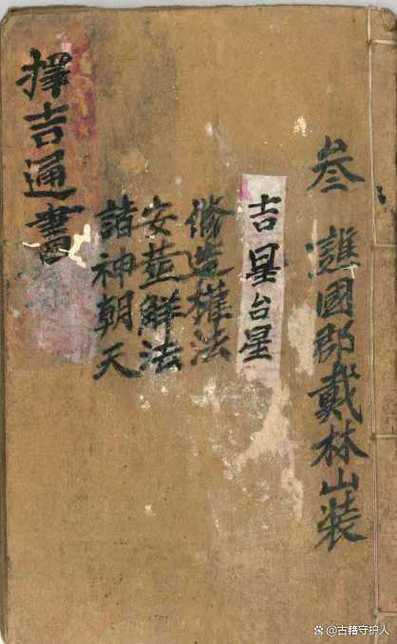 叁 譙國郡戴林山裝
吉星台星
修造權法
安葬解法
諸神朝天
擇吉通書
@古籍守护人